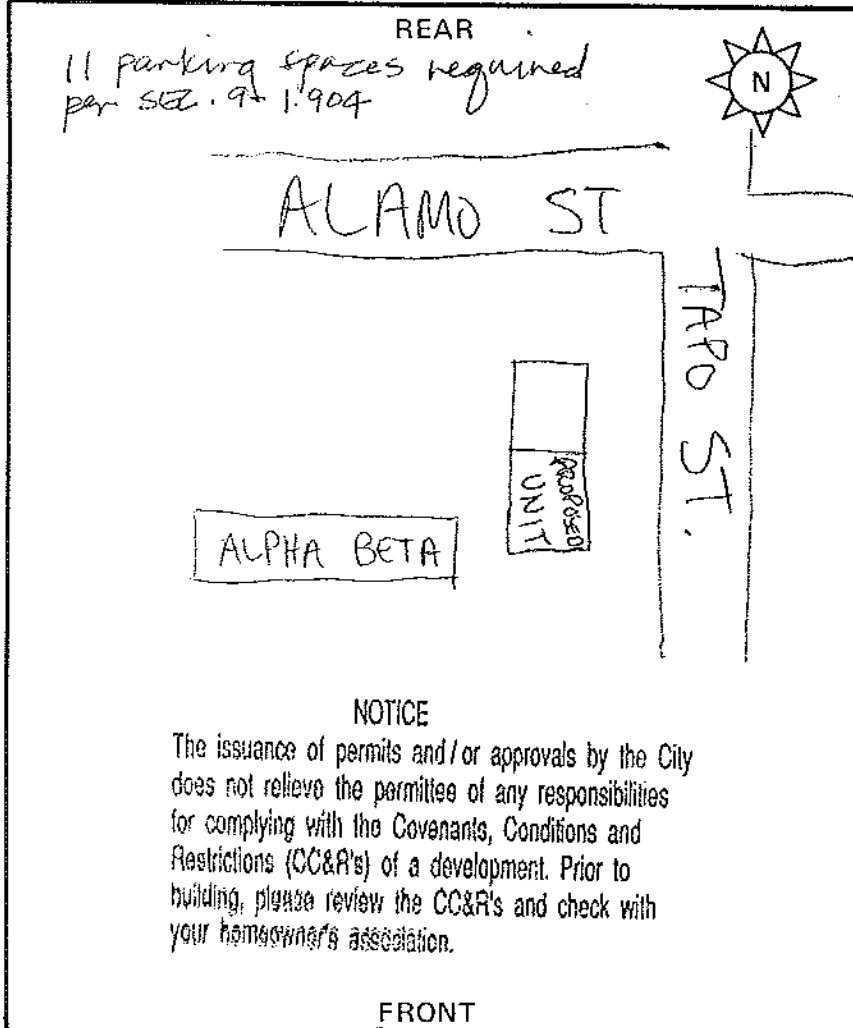 REAR
11 parking spaces required
per SEC. 9-1.904
N
ALAMO ST
TAPO ST.
PROPOSED
UNIT
ALPHA BETA
NOTICE
The issuance of permits and/or approvals by the City
does not relieve the permittee of any responsibilities
for complying with the Covenants, Conditions and
Restrictions (CC&R's) of a development. Prior to
building, please review the CC&R's and check with
your homeowner's association.
FRONT